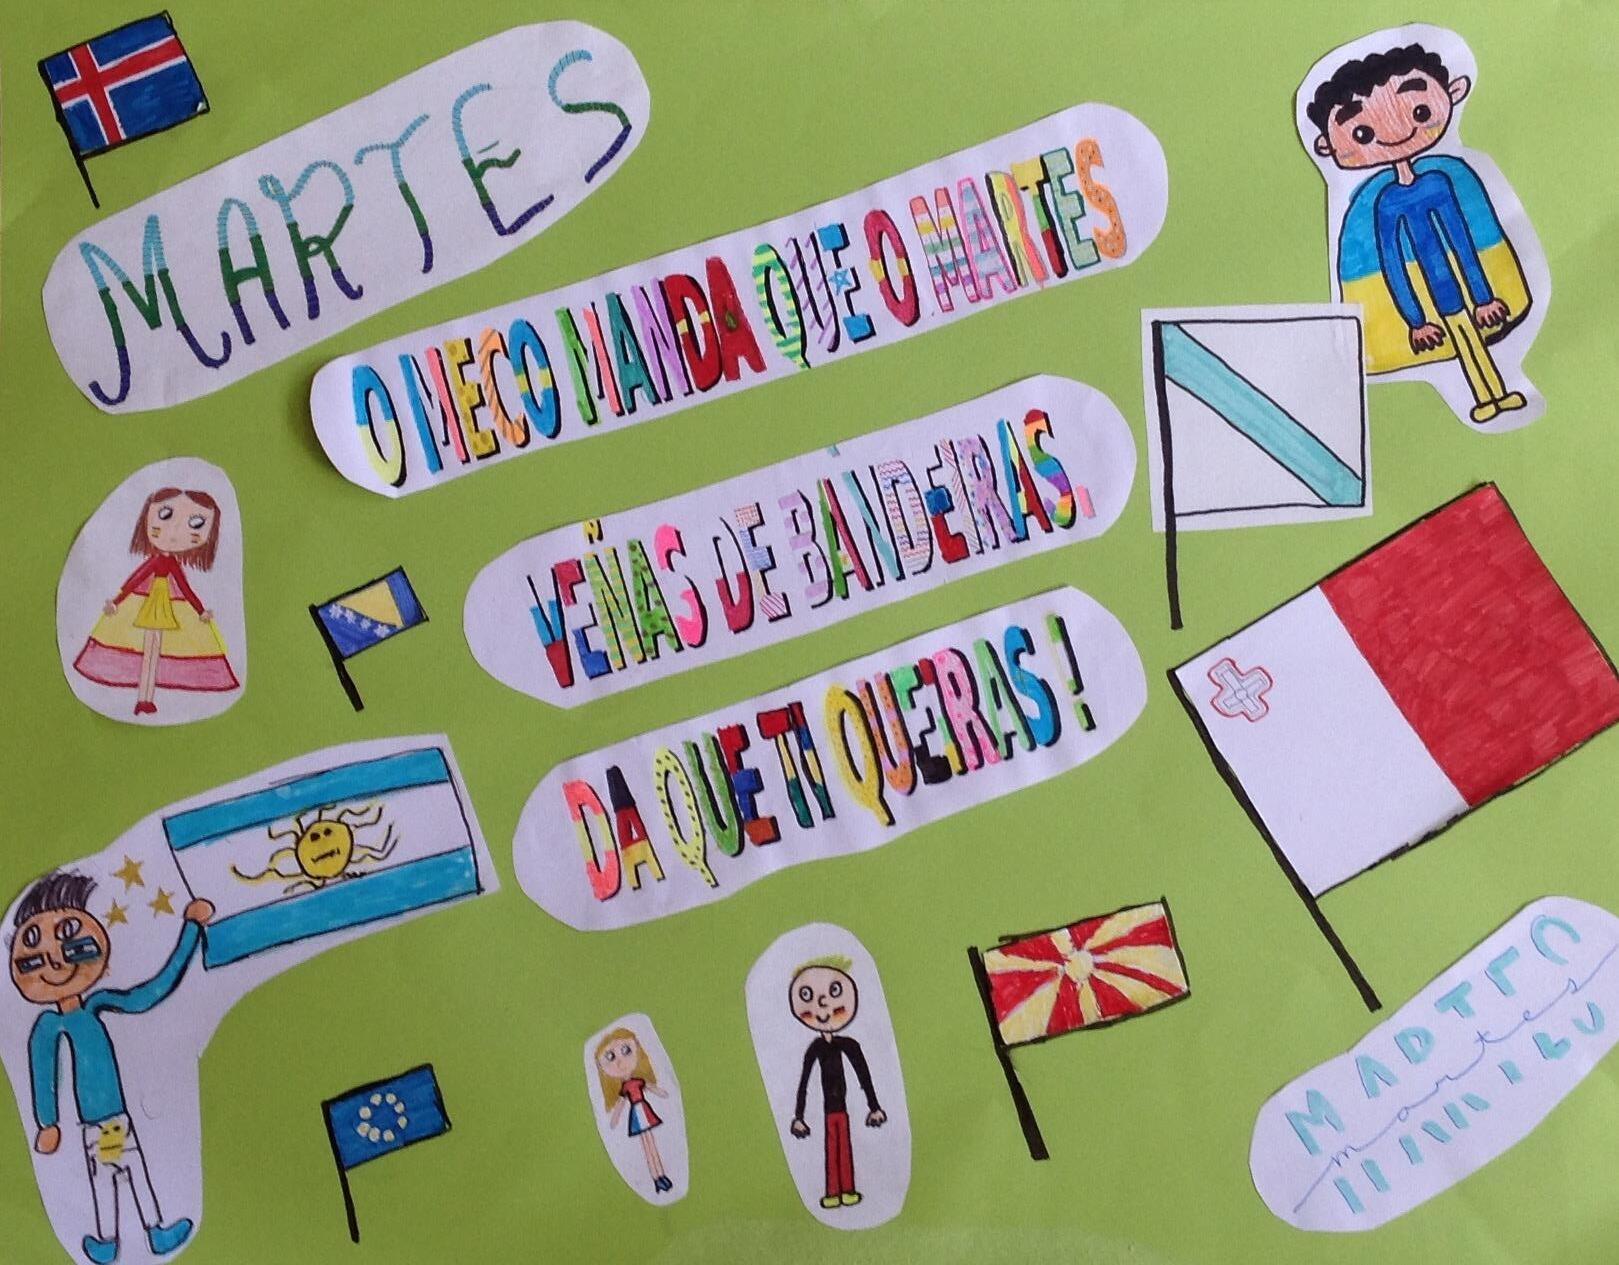 MARTES
O MECO MANDA QUE O MARTES
VEÑAS DE BANDEIRAS,
DA QUE TI QUEIRAS!
martes